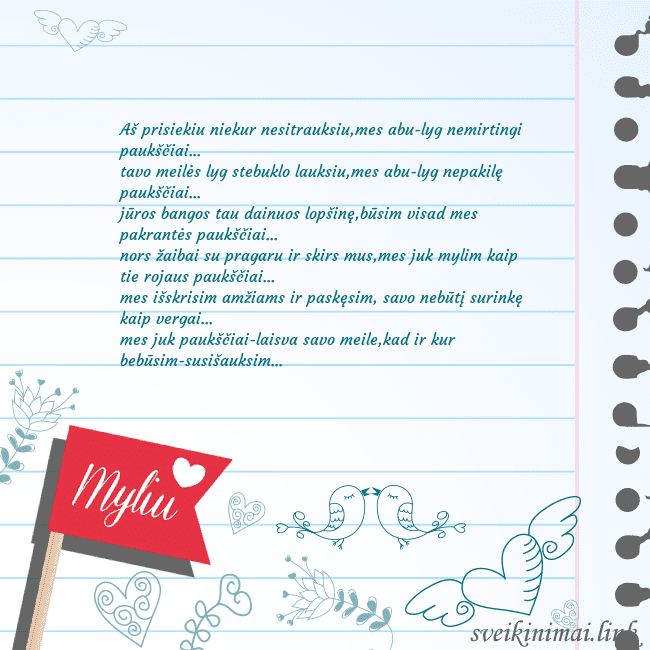 Aš prisiekiu niekur nesitrauksiu,mes abu-lyg nemirtingi
paukščiai...
tavo meilės lyg stebuklo lauksiu,mes abu-lyg nepakilę
paukščiai...
jūros bangos tau dainuos lopšinę,būsim visad mes
pakrantės paukščiai...
nors žaibai su pragaru ir skirs mus,mes juk mylim kaip
tie rojaus paukščiai...
mes išskrisim amžiams ir paskęsim, savo nebūtį surinkę
kaip vergai...
mes juk paukščiai-laisva savo meile,kad ir kur
bebūsim-susišauksim...
Myliu
sveikinimai.link